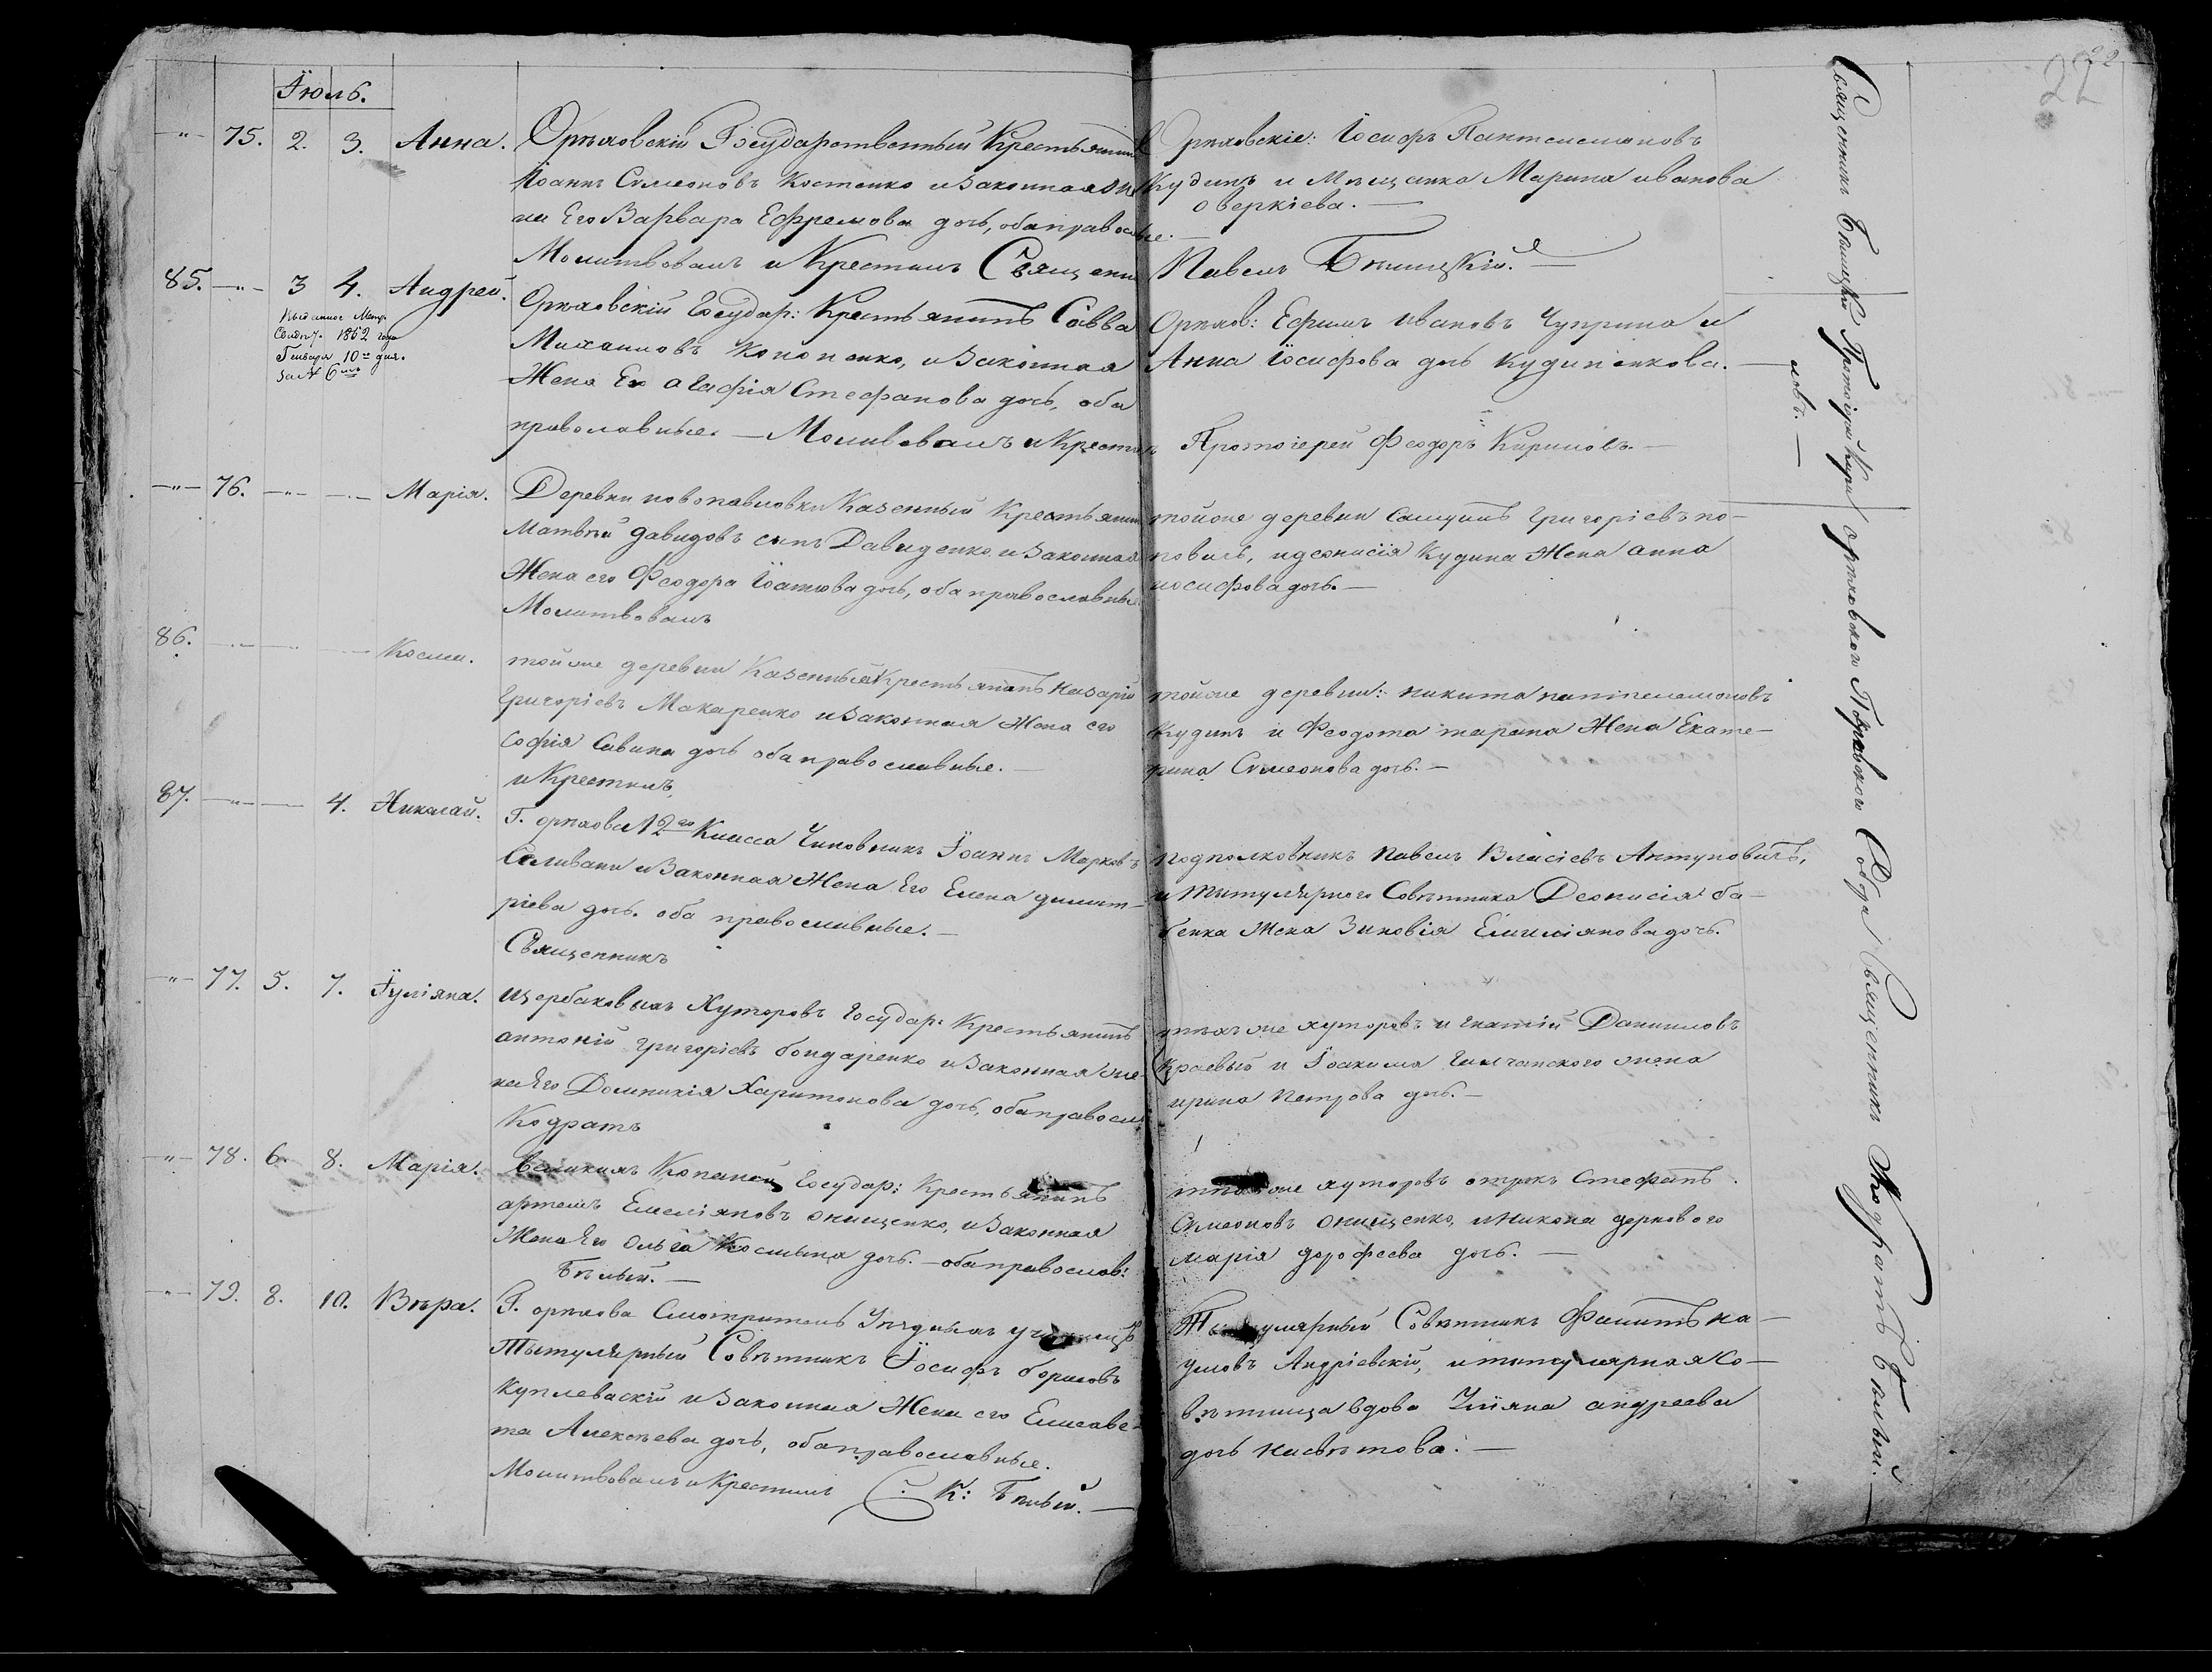 22
22
Іюль.
" 75. 2. 3. Анна.
Орѣховскій Государственный Крестьянинъ
Іоаннъ Симеоновъ Костенко и законная же
на Его Варвара Ефремова дочь, оба православные.
Молитвовалъ и Крестилъ Священникъ Павелъ Бѣлицкій.
Орѣховскіе: Іосифъ Пантелеимоновъ
Кудинъ и Мѣщанка Марина иванова
оверкіева.
85. " 3 4. Андрей.
Выданное Метр.
Свидѣт. 1852 года
Генваря 10го дня.
за № 6мъ
Орѣховскій Государ: Крестьянинъ Савва
Михаиловъ Кононенко, и законная
Жена Ео агафія Стефанова дочь, оба
православные. — Молитвовалъ и Крестилъ Протоіерей Феодоръ Кириловъ.
Орѣхов: Ефимъ ивановъ Чуприна и
Анна Іосифова дочь Кудиненкова.
" 76. " " Марія.
Деревни новопавловки Казенный Крестьянинъ
Матвѣй давидовъ сынъ Давиденко, и законная
Жена его Феодора Іоаннова дочь, оба православные
Молитвовалъ
тойже деревни Самуилъ григоріевъ по-
повичь, идеонисія Кудина Жена анна
иосифова дочь.
86. " " Косма.
тойже деревни Казенный Крестьянинъ назарій
григоріевъ Макаренко и законная Жена его
софія Савина дочь оба православные.
и Крестилъ,
тойже деревни: никита пантелеимоновъ
Кудинъ и Феодота тарана Жена Екате-
рина Симеонова дочь.
87. " 4. Николай.
Г. орѣхова 12го Класса Чиновникъ Іоаннъ Марковъ
Селивани и законная Жена Его Елена димит-
ріева дочь. оба православные.
Священникъ
подполковникъ павелъ Власіевъ Антуновичь,
и титулярного Совѣтника Деонисія ба-
бенка Жена Зиновія Емиліянова дочь.
" 77. 5. 7. Іуліяна.
щербаковыхъ Хуторовъ Государ: Крестьянинъ
антоній григоріевъ бондаренко и законная же-
на Его Домникія Харитонова дочь, оба правосл:
Кодратъ
тѣхъже хуторовъ игнатій Данииловъ
Краевый и Іоакима жена
ирина Петрова дочь.
" 78. 6. 8. Марія.
великихъ Копаней Государ: Крестьянинъ
артемъ Емеліяновъ онищенко, и законная
Жена Его Ольга Космина дочь. — оба православ:
Бѣлый.
тѣхъже хуторовъ отрокъ Стефанъ
Симеоновъ онищенко, и никона церкового
марія дорофеева дочь.
" 79. 8. 10. Вѣра.
Г. орѣхова Смотритель Уѣздныхъ училищъ
Титулярный Совѣтникъ Іосифъ борисовъ
Куплеваскій и законная Жена его Елисаве-
та Алексѣева дочь, оба православные.
Молитвовалъ и Крестилъ С: К: Бѣлый.
Титулярный Совѣтникъ Филипъ на-
умовъ Андріевскій, и титулярная Со-
вѣтница вдова Уліяна андреева
дочь насвѣтова.
Священникъ Бѣлицкій Протоіерей Кири
ловъ.
Орѣховского Покровского Собора Священникъ Кодратъ Бѣлый.